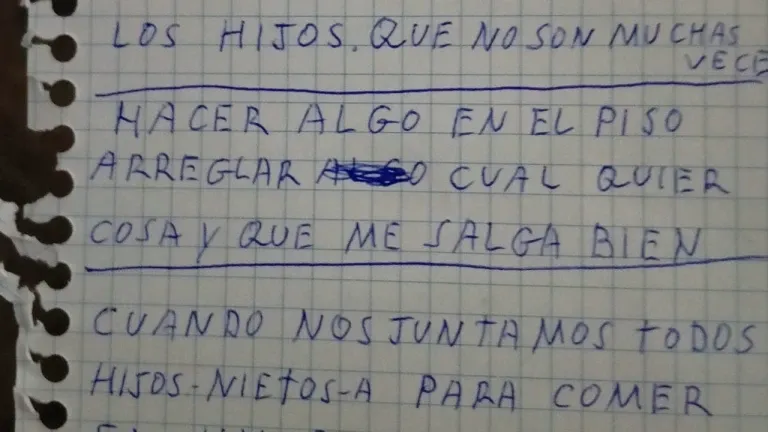 LOS HIJOS. QUE NO SON MUCHAS
VECE
HACER ALGO EN EL PISO
ARREGLAR CUAL QUIER
COSA Y QUE ME SALGA BIEN
CUANDO NOS JUNTAMOS TODOS
HIJOS-NIETOS-A PARA COMER